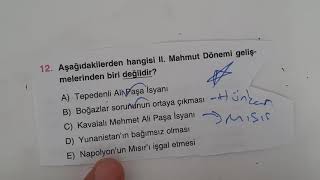 12. Aşağıdakilerden hangisi II. Mahmut Dönemi geliş-
melerinden biri değildir?
A) Tepedenli Ali Paşa İsyanı
B) Boğazlar sorununun ortaya çıkması → Hünkar
C) Kavalalı Mehmet Ali Paşa İsyanı → MISIR
D) Yunanistan'ın bağımsız olması
E) Napolyon'un Mısır'ı işgal etmesi